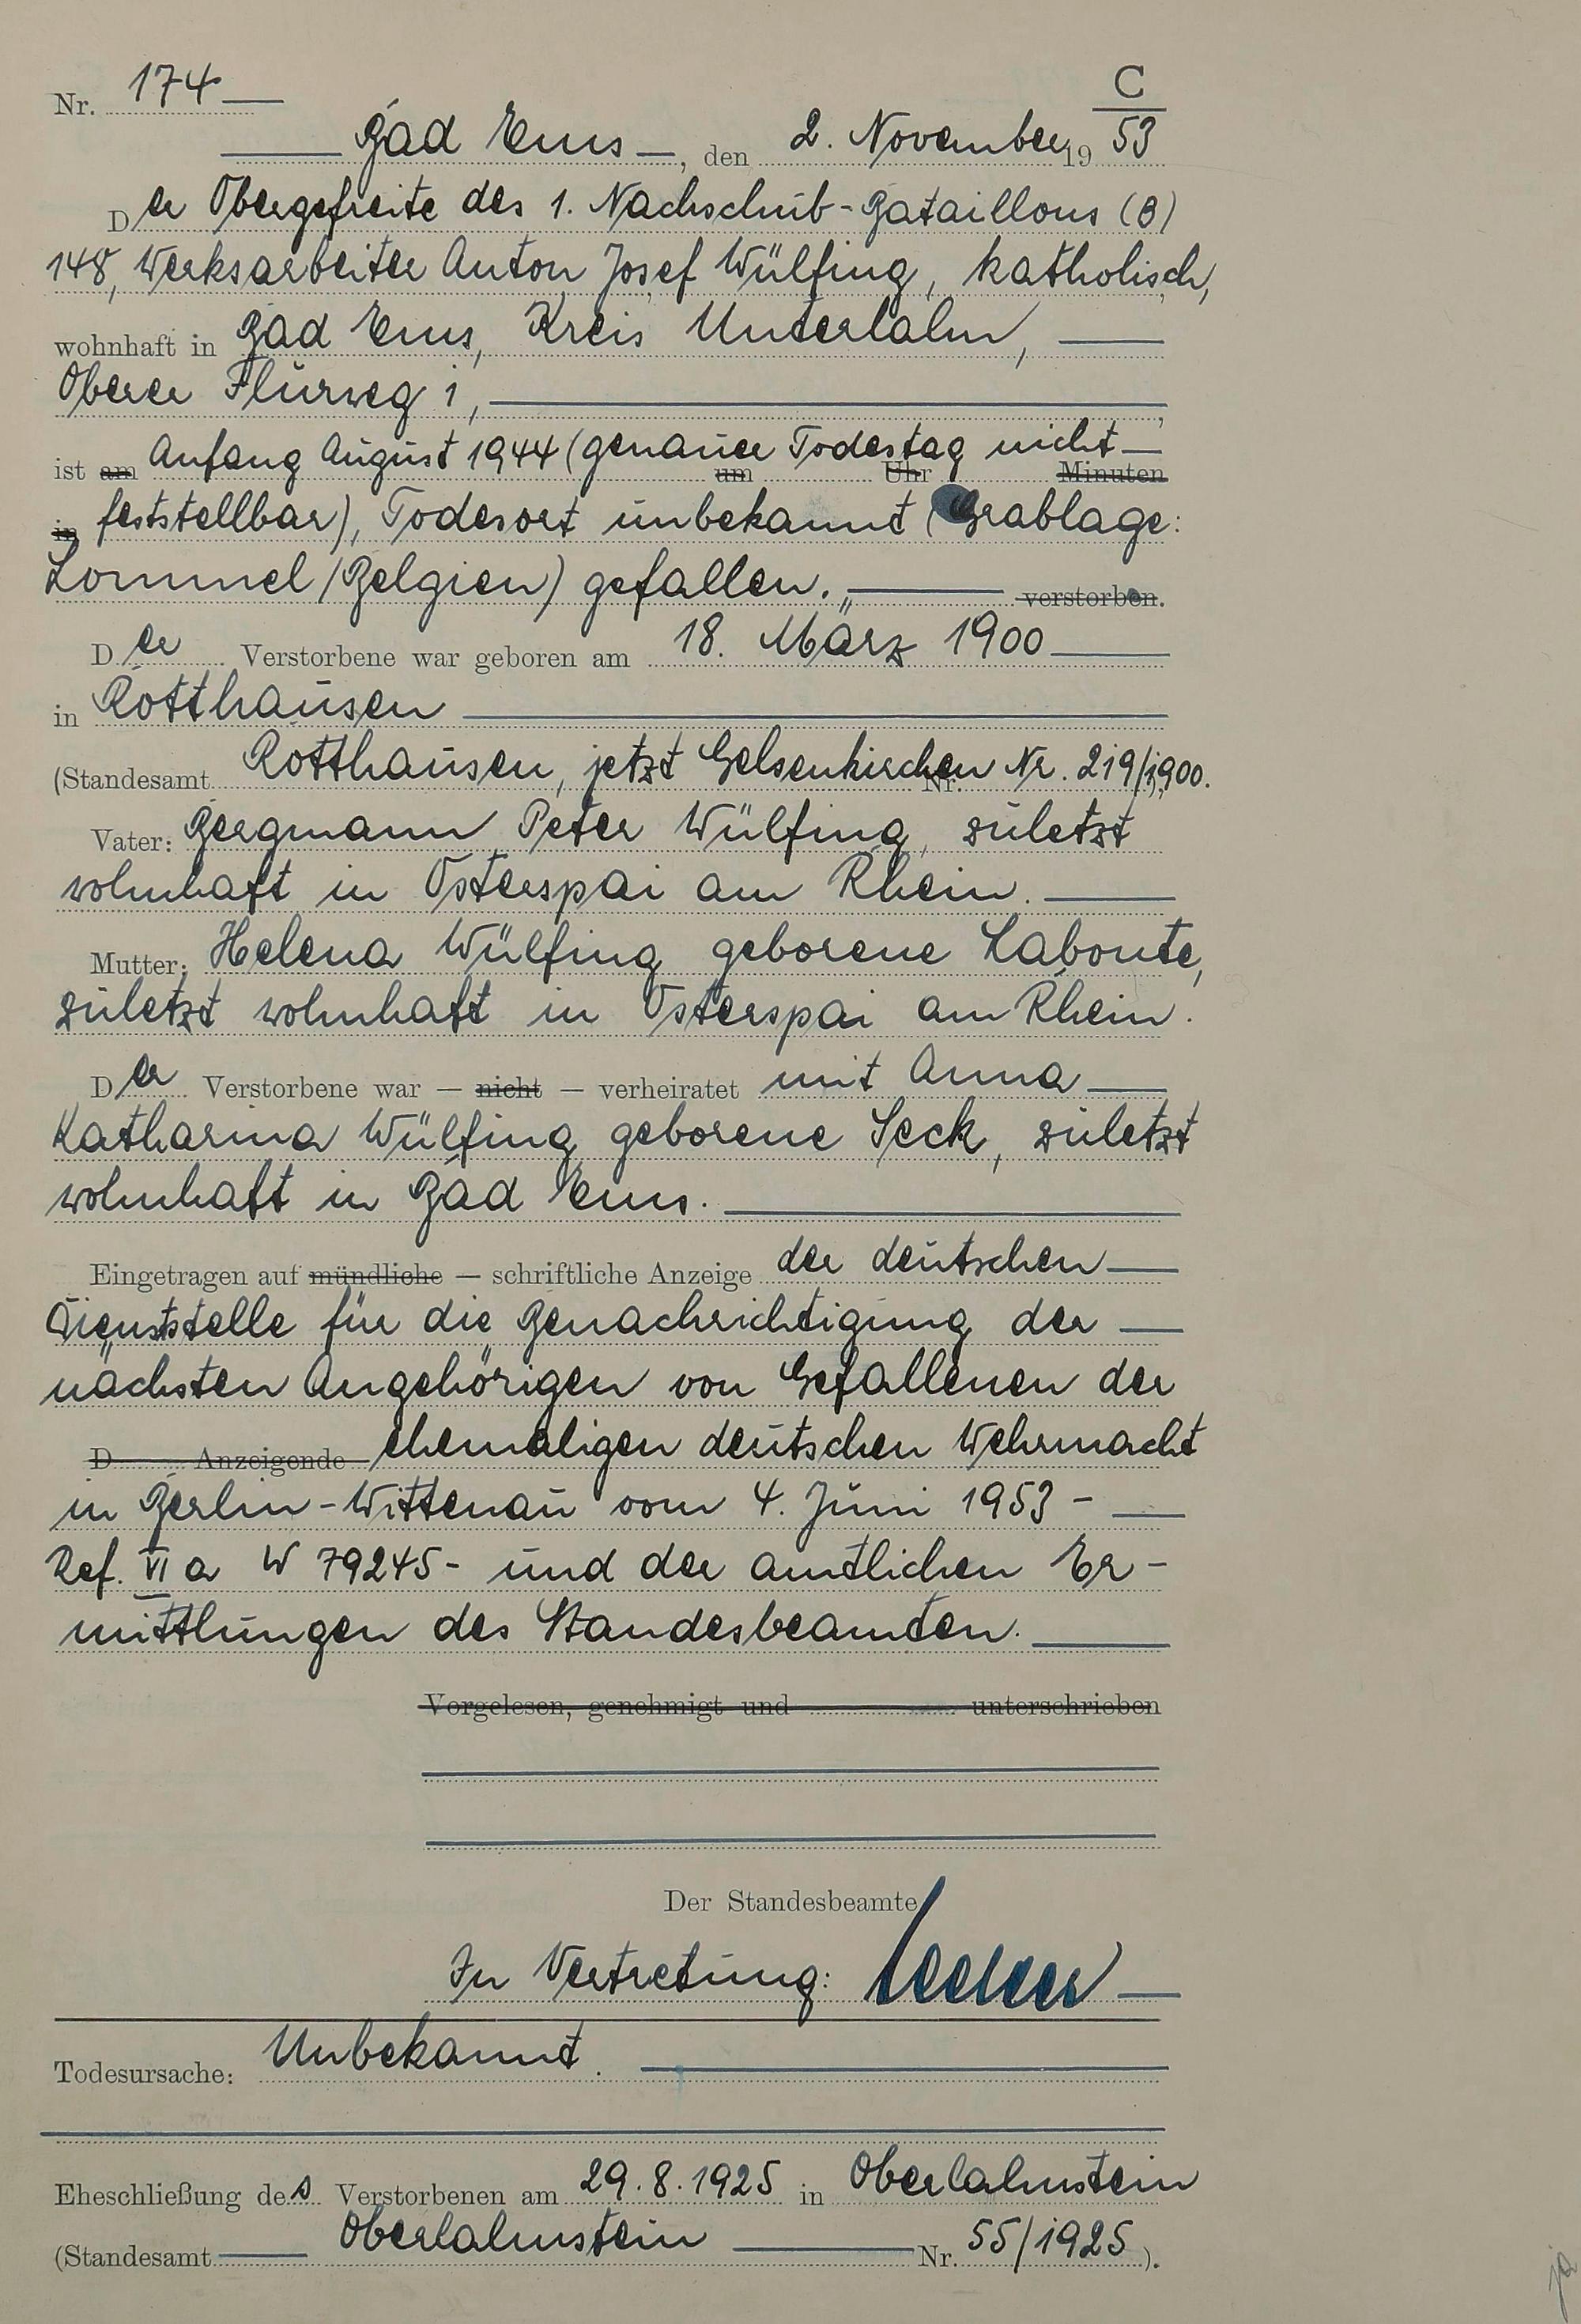 C
Nr. 174
Bad Ems, den 2. November 19 53
Der Obergefreite des 1. Nachschub-Bataillons (B)
148, Werksarbeiter Anton Josef Wülfing, katholisch,
wohnhaft in Bad Ems, Kreis Unterlahn,
Oberer Flurweg 1,
ist am Anfang August 1944 (genauer Todestag nicht
um Uhr Minuten
in feststellbar), Todesort unbekannt (Grablage:
Lommel/Belgien) gefallen. verstorben.
Der Verstorbene war geboren am 18. März 1900
in Rotthausen
(Standesamt Rotthausen, jetzt Gelsenkirchen Nr. Nr. 219/1900.
Vater: Bergmann Peter Wülfing, zuletzt
wohnhaft in Osterspai am Rhein.
Mutter: Helena Wülfing geborene Labonte,
zuletzt wohnhaft in Osterspai am Rhein.
Der Verstorbene war — nicht — verheiratet mit Anna
Katharina Wülfing geborene Seck, zuletzt
wohnhaft in Bad Ems.
Eingetragen auf mündliche — schriftliche Anzeige der deutschen
Dienststelle für die Benachrichtigung der
nächsten Angehörigen von Gefallenen der
D Anzeigende ehemaligen deutschen Wehrmacht
in Berlin-Wittenau vom 4. Juni 1953 -
Ref. VI a W 79245- und der amtlichen Er-
mittlungen des Standesbeamten.
Vorgelesen, genehmigt und unterschrieben
Der Standesbeamte
In Vertretung:
Todesursache: Unbekannt.
Eheschließung des Verstorbenen am 29.8.1925 in Oberlahnstein
(Standesamt Oberlahnstein Nr. 55/1925).